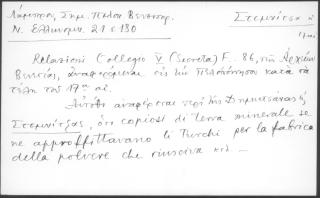 Λάμπρος, Σημ. Πελοπ. Βενετοκρ. Στεμνίτσα
Ν. Ελληνομν. 21 σ 130
Relazioni Collegio V (Secreta) F. 86, τῶν Ἀρχείων
Βενετίας, ἀναφερόμεναι εἰς τὴν Πελοπόννησον κατὰ τὰ
τέλη τοῦ 17ου αἰ.
Αὐτόθι ἀναφέρεται περὶ τῆς Δημητσάνας
Στεμνίτζας, ὅτι copiosi di terra minerale se
ne approffittavano li Turchi per la fabrica
della polvere che riusciva κτλ